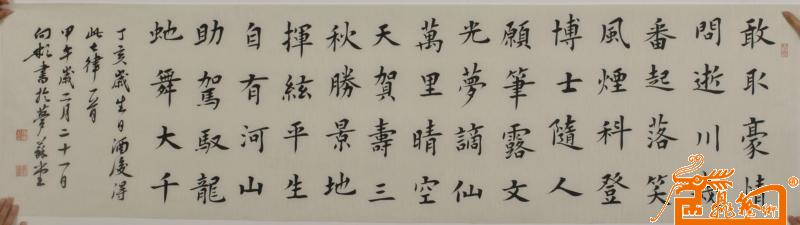 敢取豪情
問逝川幾
番起落笑
風煙科登
博士隨人
願筆露文
光夢謫仙
萬里晴空
天賀壽三
秋勝景地
揮絃平生
自有河山
助駕馭龍
虵舞大千
丁亥歲生日酒後得
此七律一首
甲午歲二月二十一日
向彬書於夢蘇堂